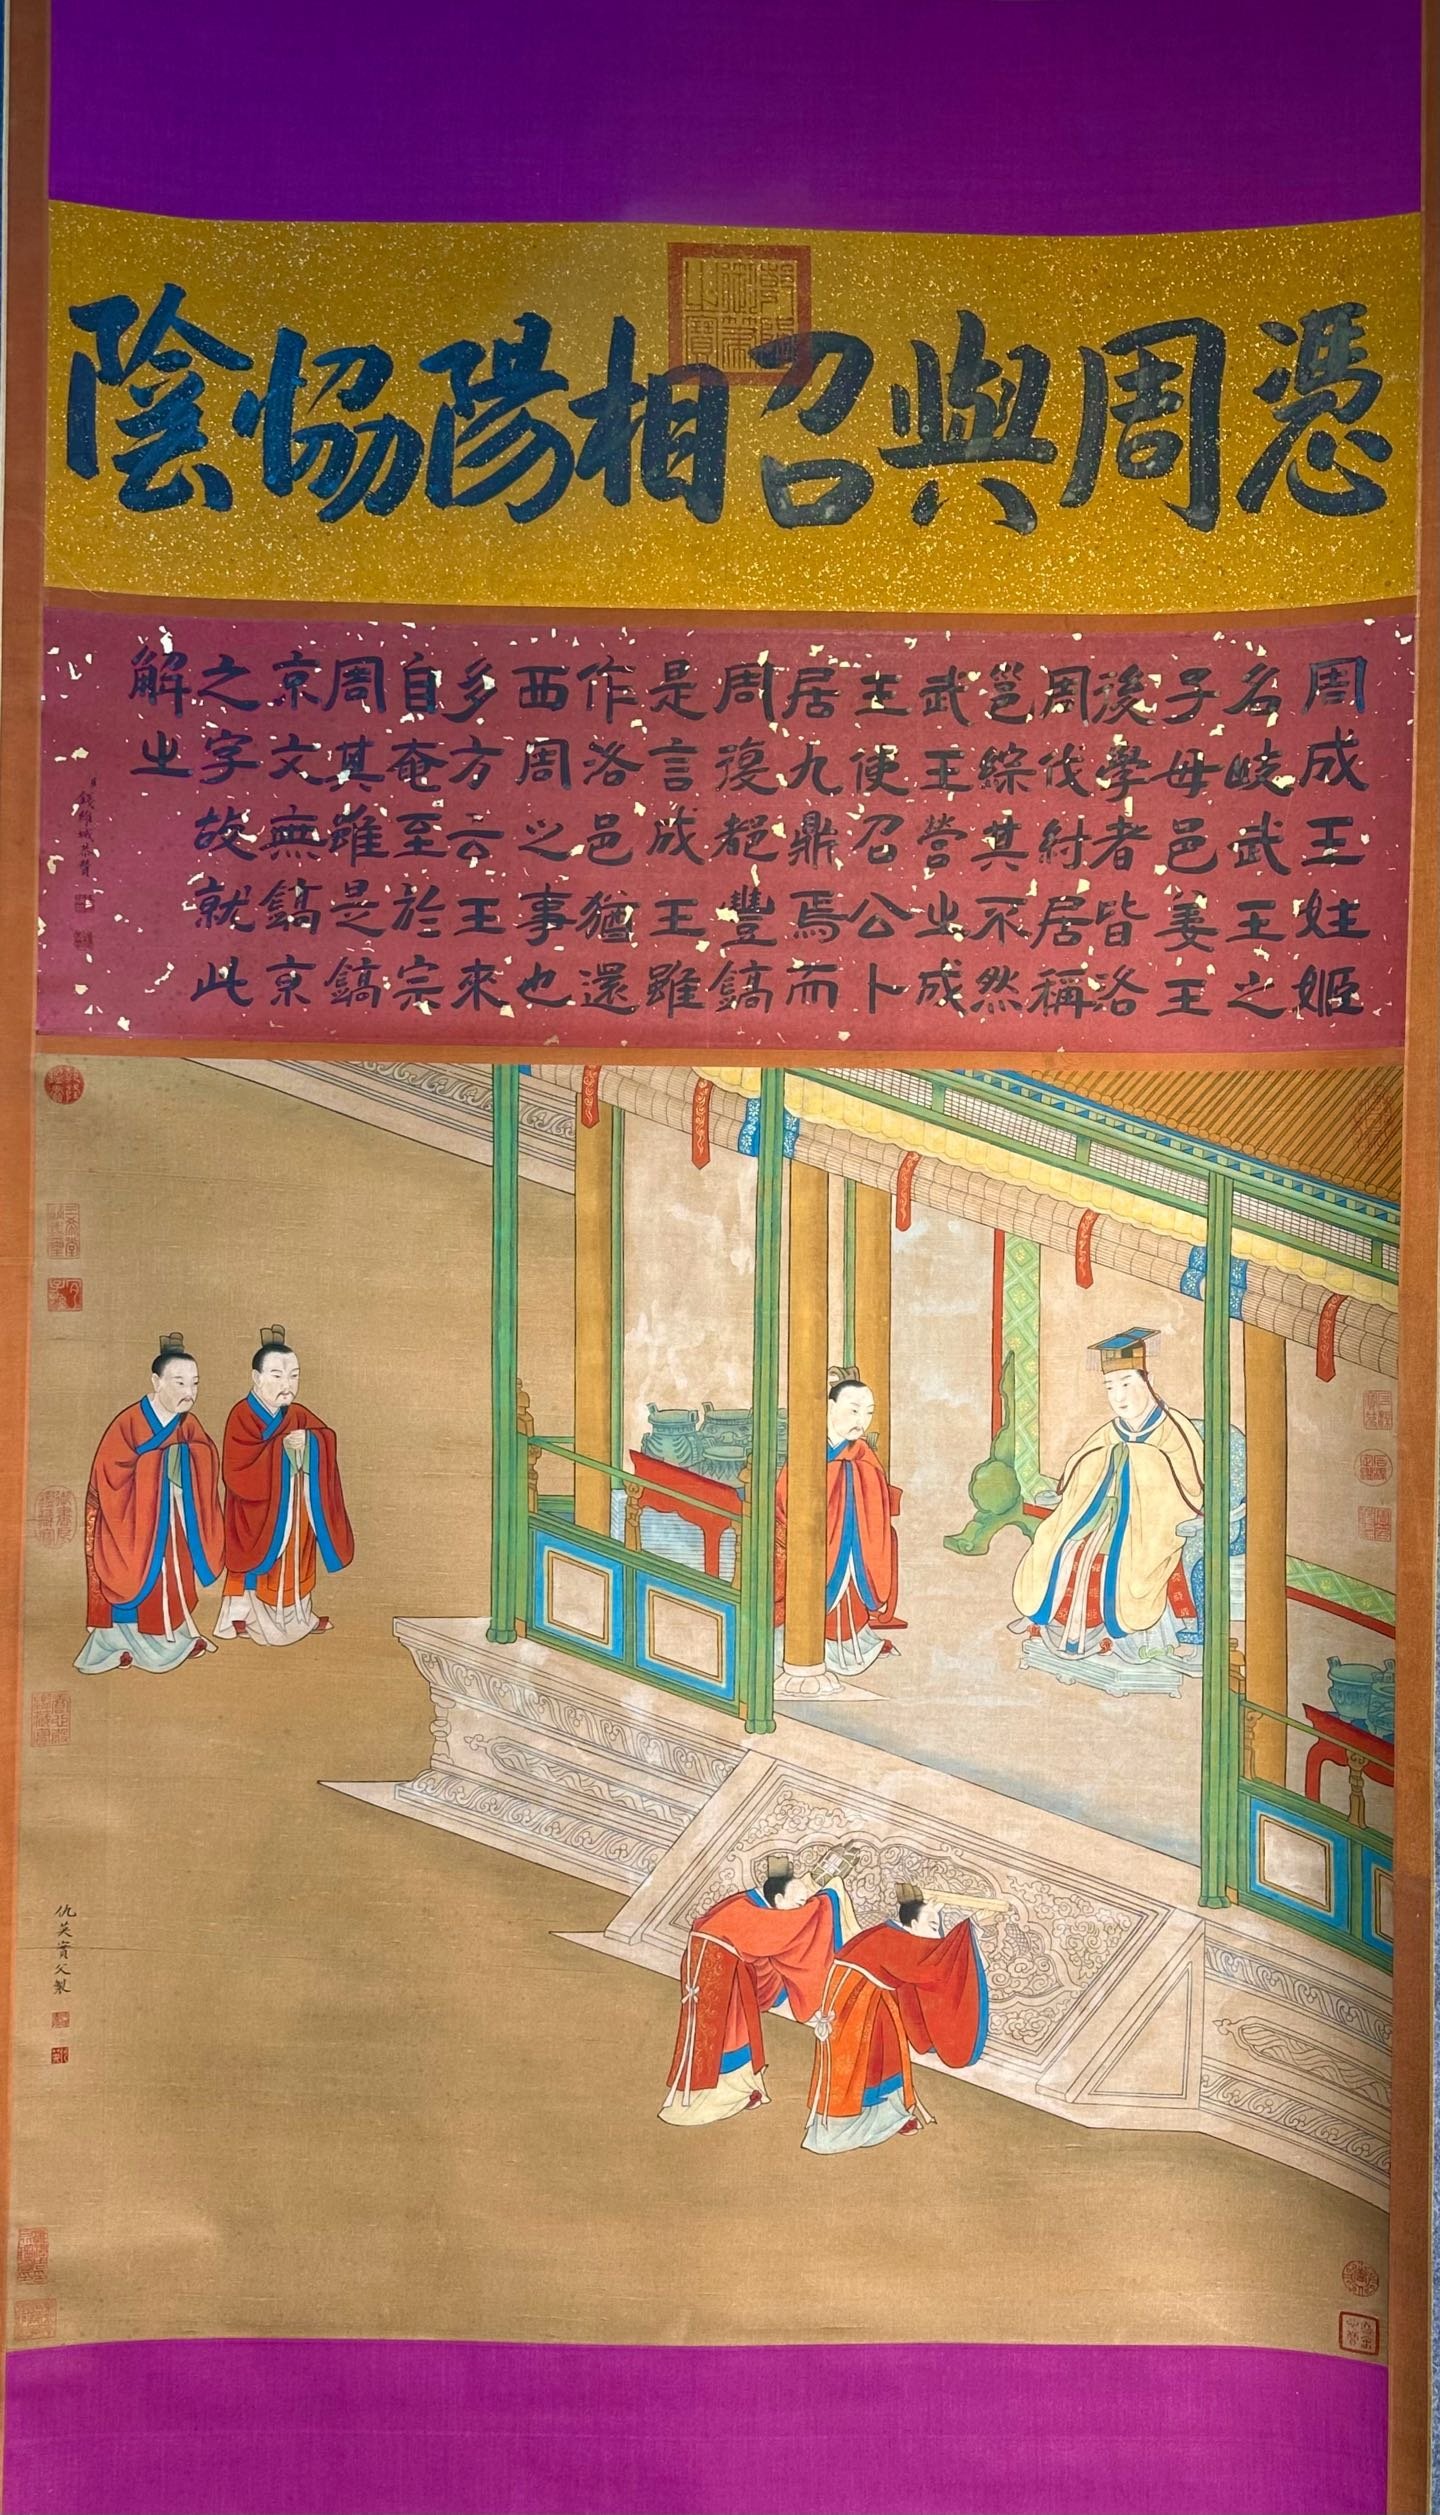 憑周與召相陽恊陰
周成王姓姬
名岐武王之
子母邑姜王
後學者皆洛
周伐紂居稱
邕綜其不然
武王營之成
王使召公卜
居九鼎焉而
周復都豐鎬
是言成王雖
作洛邑猶還
西周之事也
多方云王來
自奄至於宗
周其雖是鎬
京文無鎬京
之字故就此
解之
臣錢維城恭贊
仇英實父製